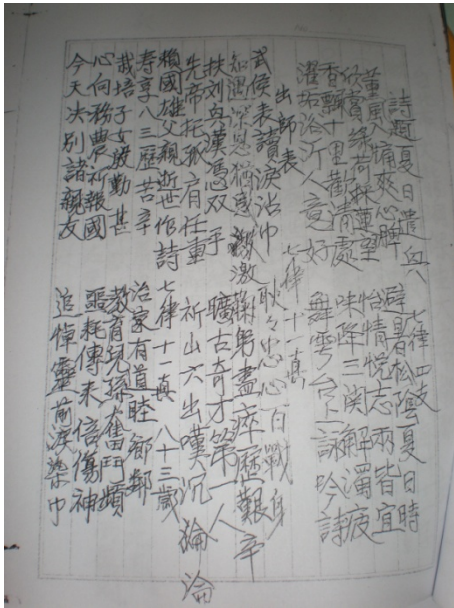 詩題夏日遣興 七律四支
薰風入牖爽心脾 避暑松陰夏日時
欣賞綠荷採蓮 怡情悅志兩皆宜
香飄十里勸清處 味降三関解濁疲
濯垢浴沂人竟好 舞雩台下詠吟詩
出師表 七律十一真
武侯表讀淚沾巾 耿々忠心百戰身
知遇深恩猶感激 鞠躬盡瘁歷艱辛
扶刘血漢憑双手 曠古奇才第一人
先帝托孤肩任重 祈山六出嘆沉淪 淪
賴國雄父親逝世作詩 七律十一真 八十三歲
寿享八三歷苦辛 治家有道睦鄉鄰
栽培子女殷勤甚 教育兒孫奮鬥頻
心向務農祈報國 噩耗傳來倍傷神
今天決別諸親友 追悼靈前淚染巾